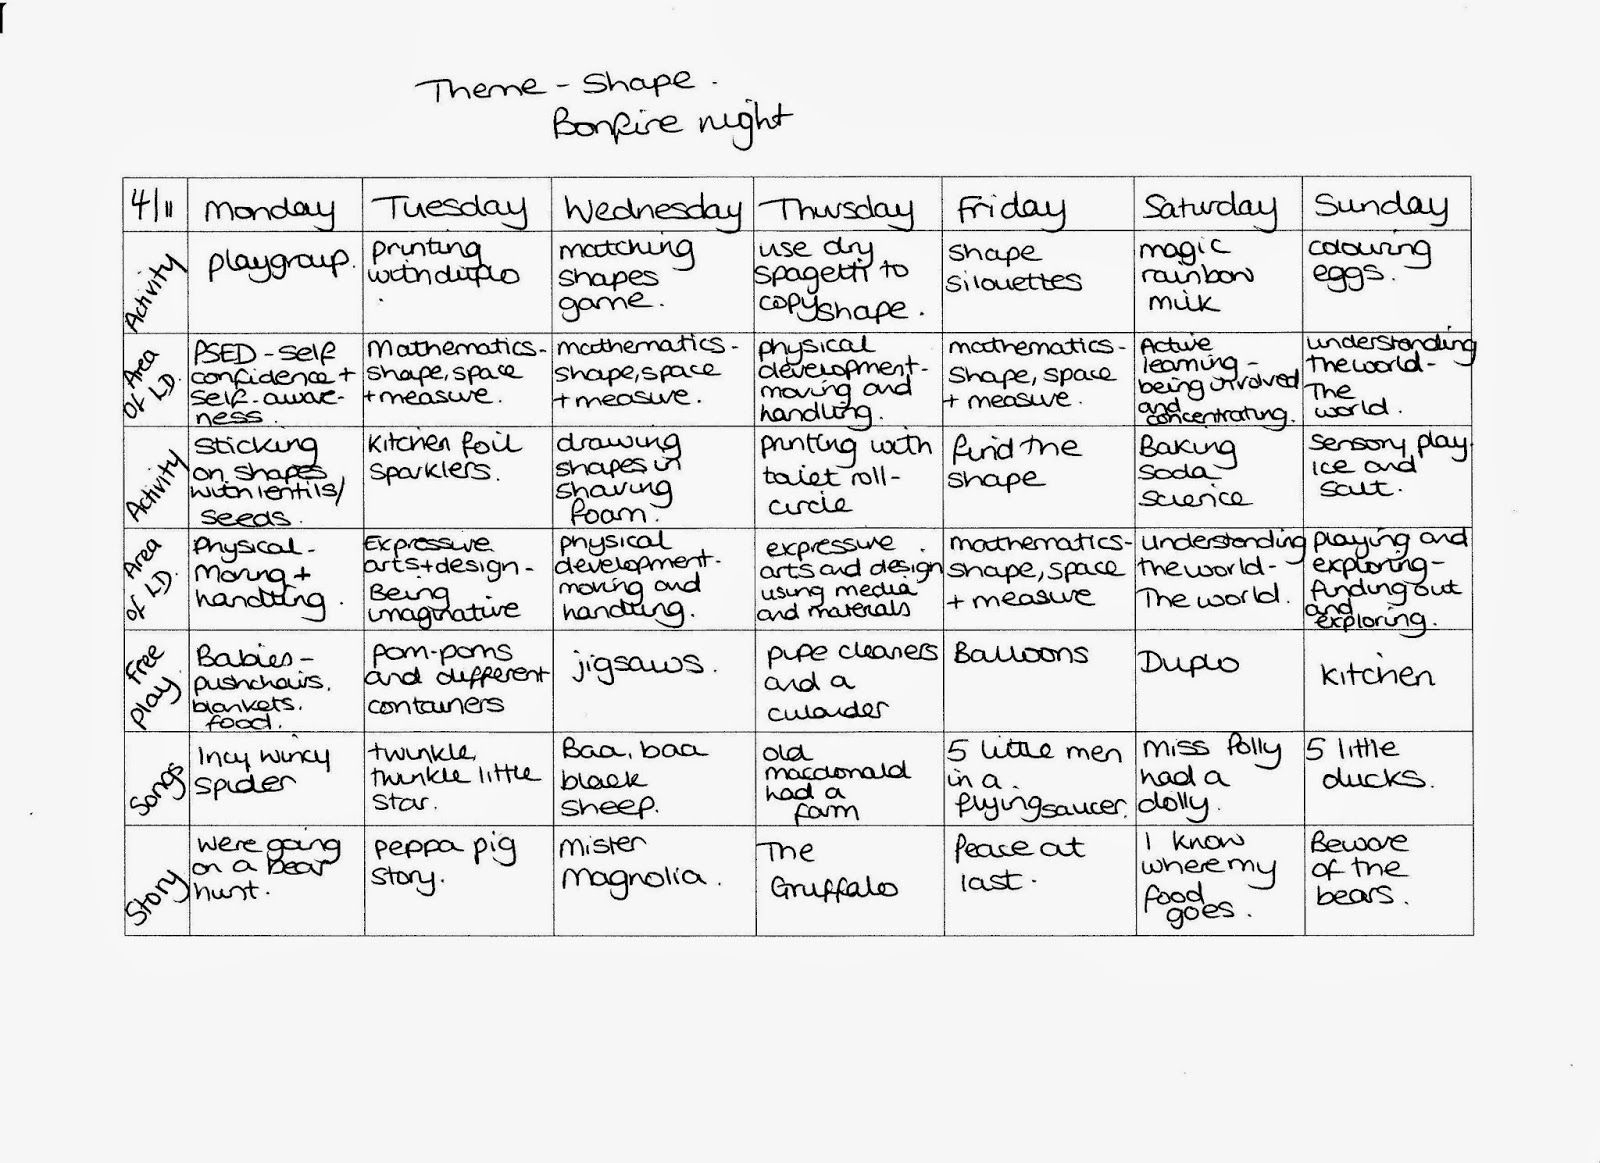 Theme - Shape.
Bonfire night
4/11 Monday Tuesday Wednesday Thursday Friday Saturday Sunday
Activity
playgroup.
printing
with duplo
matching
shapes
game.
use dry
spagetti to
copy shape.
shape
silouettes
magic
rainbow
milk
colouring
eggs.
Area
of L.D.
PSED - self
confidence +
self-aware-
ness.
Mathematics-
shape, space
+ measure.
mathematics-
shape, space
+ measure.
physical
development-
moving and
handling.
mathematics-
shape, space
+ measure.
Active
learning-
being involved
and
concentrating.
understanding
the world-
The
world.
Activity
Sticking
on shapes
with lentils/
seeds.
Kitchen foil
sparklers.
drawing
shapes in
shaving
foam.
printing with
toilet roll-
circle
find the
shape
Baking
Soda
Science
Sensory play.
ice and
salt.
Area
of L.D.
Physical-
Moving +
handling.
Expressive
arts + design -
Being
imaginative
physical
development-
moving and
handling.
expressive
arts and design
using media
and materials
mathematics-
shape, space
+ measure
understanding
the world-
The world.
playing and
exploring-
finding out
and
exploring.
Free
play.
Babies-
pushchairs.
blankets.
food.
pom-poms
and different
containers
jigsaws.
pipe cleaners
and a
culander
Balloons
Duplo
kitchen
Songs
Incy wincy
spider
twinkle,
twinkle little
star.
Baa, baa
black
sheep.
old
macdonald
had a
farm
5 little men
in a
flying saucer.
Miss Polly
had a
dolly.
5 little
ducks.
Story
Were going
on a bear
hunt.
peppa pig
story.
Mister
Magnolia.
The
Gruffalo
Peace at
last.
I know
where my
food
goes.
Beware
of the
bears.